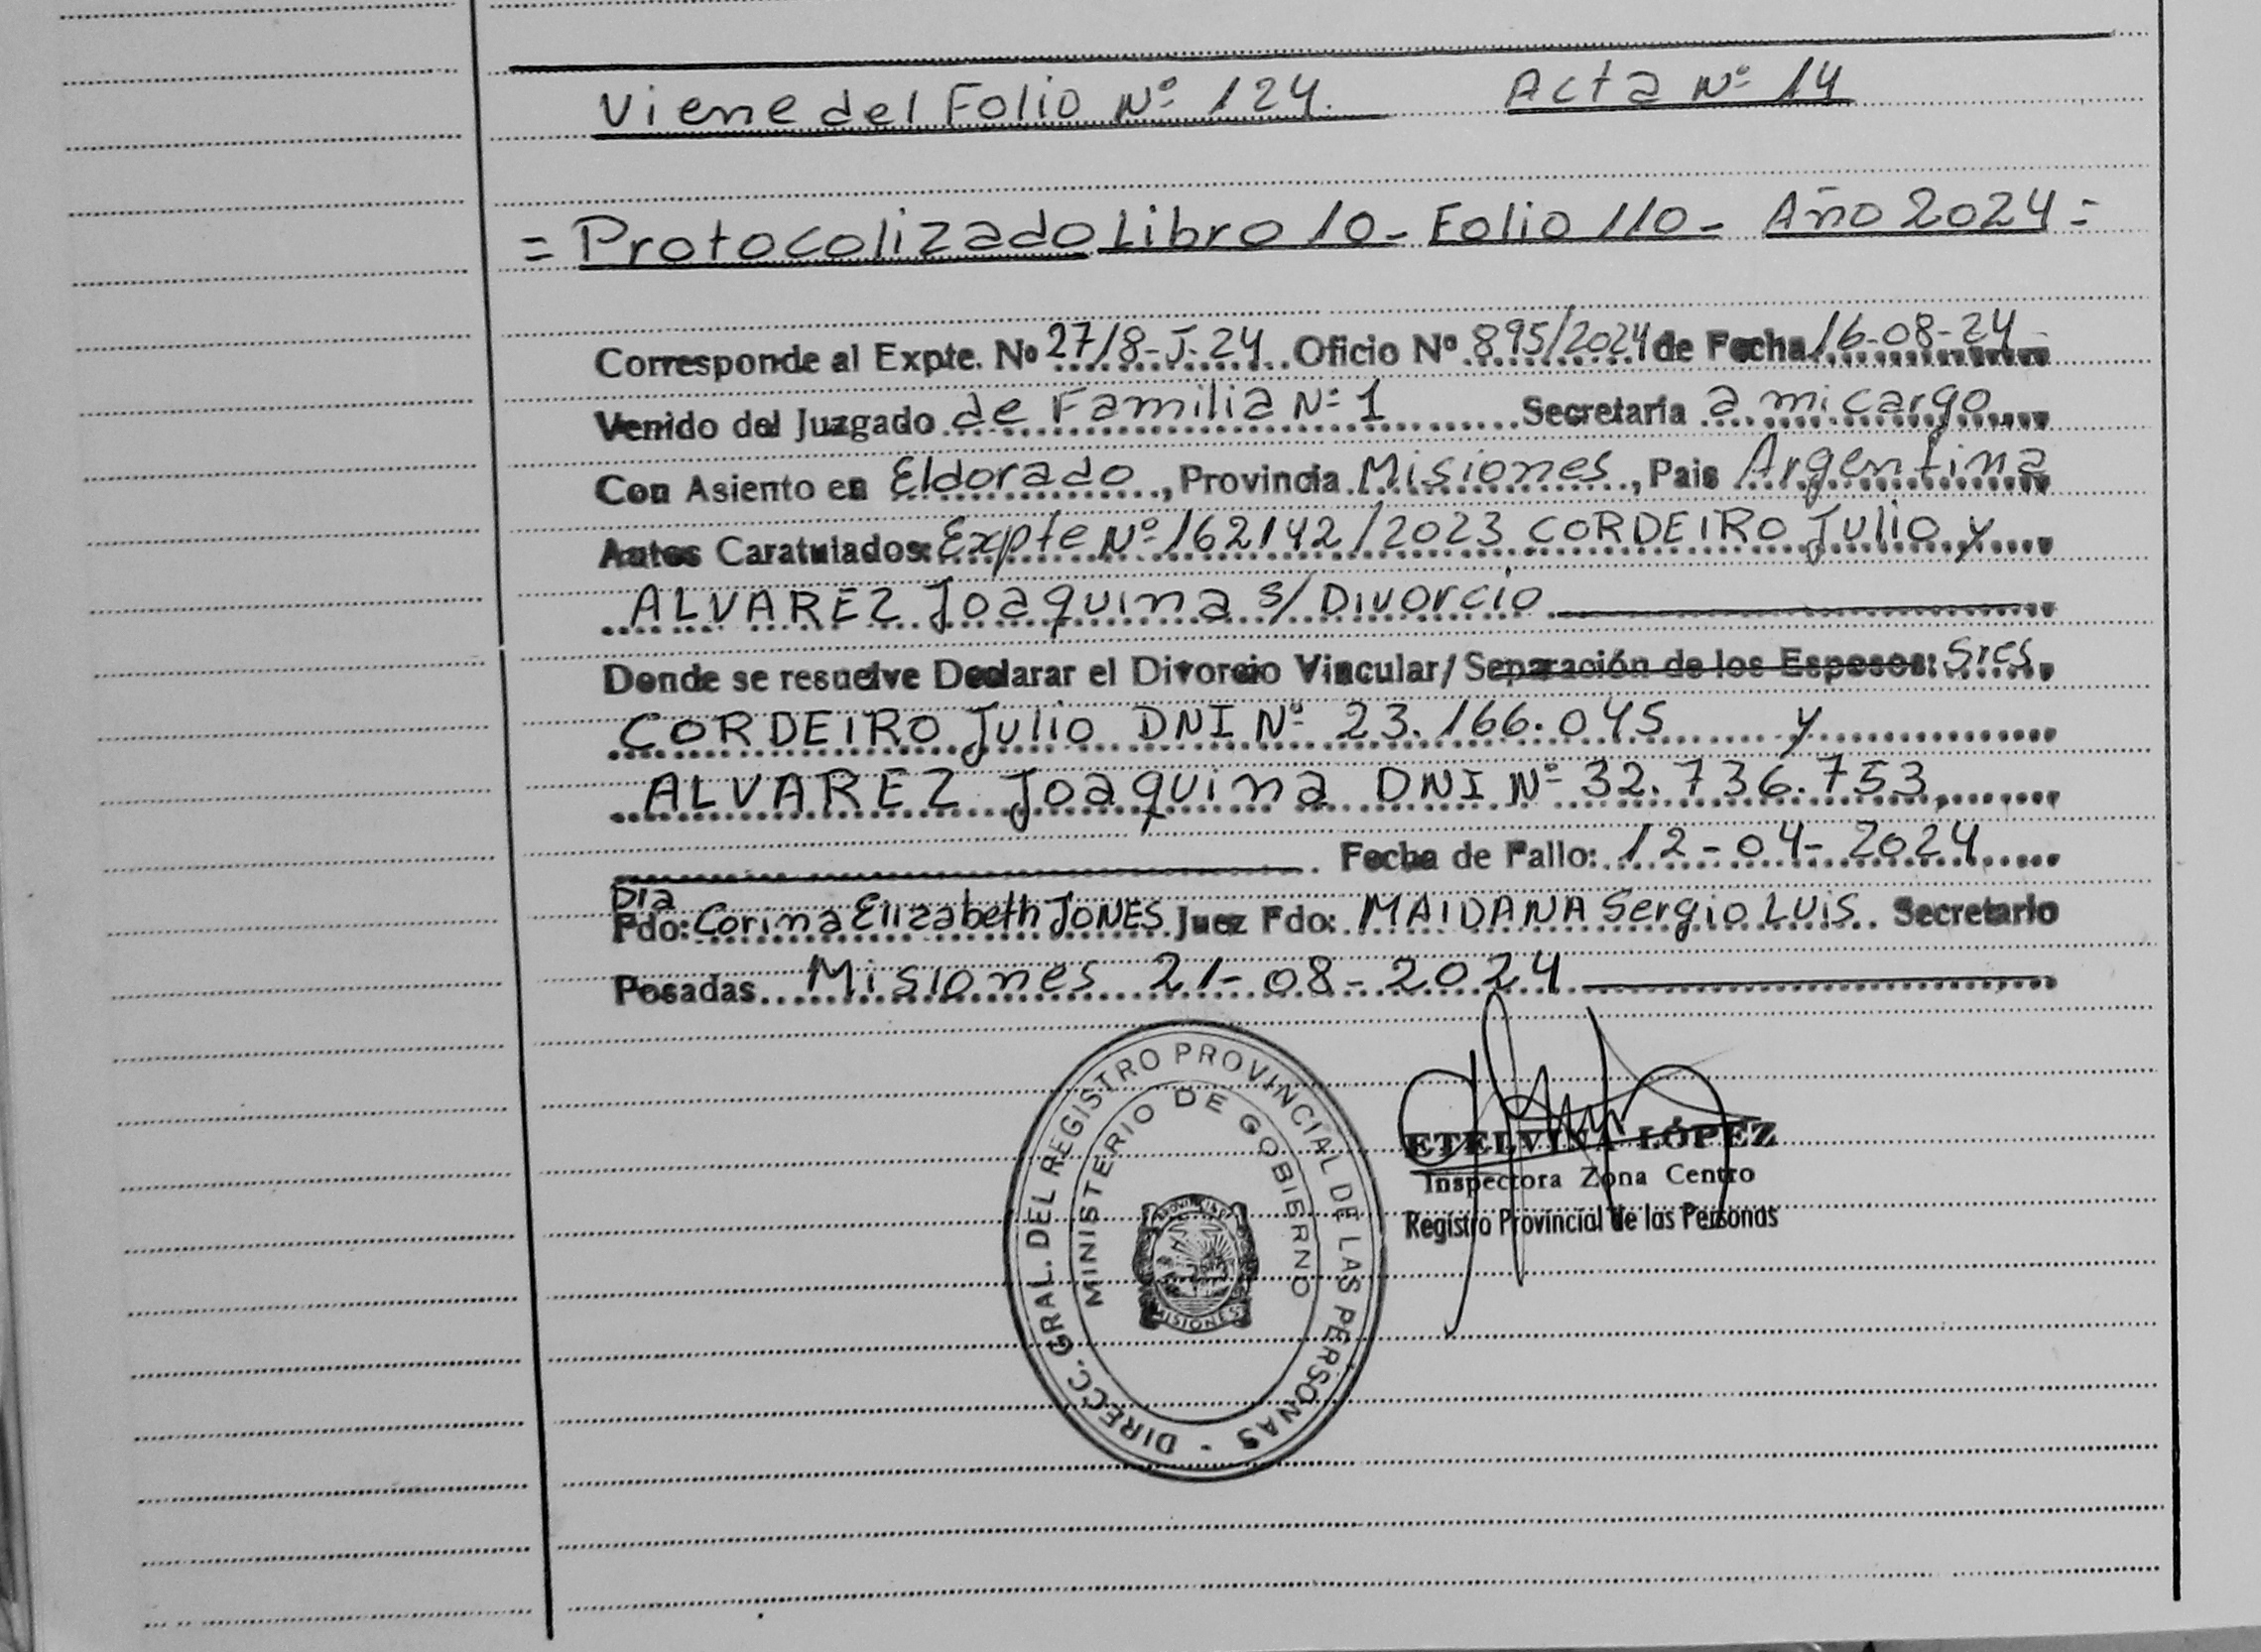 Viene del Folio Nº 124. Acta Nº 14
= Protocolizado Libro 10 - Folio 110 - Año 2024 =
Corresponde al Expte. Nº 27/8-J-24 Oficio Nº 895/2024 de Fecha 16-08-24-
Venido del Juzgado de Familia Nº 1 Secretaría a mi cargo
Con Asiento en Eldorado, Provincia Misiones, Pais Argentina
Autos Caratulados: Expte Nº 162142/2023 CORDEIRO Julio y
ALVAREZ Joaquina s/ Divorcio
Donde se resuelve Declarar el Divorcio Vincular/ Separación de los Esposos: Sres
CORDEIRO Julio DNI Nº 23.166.045 y
ALVAREZ Joaquina DNI Nº 32.736.753
Fecha de Fallo: 12-04-2024
Dra
Fdo: Corina Elizabeth JONES Juez Fdo: MAIDANA Sergio Luis. Secretario
Posadas Misiones 21-08-2024
DIRECC. GRAL. DEL REGISTRO PROVINCIAL DE LAS PERSONAS -
MINISTERIO DE GOBIERNO
MISIONES
ETELVINA LÓPEZ
Inspectora Zona Centro
Registro Provincial de las Personas